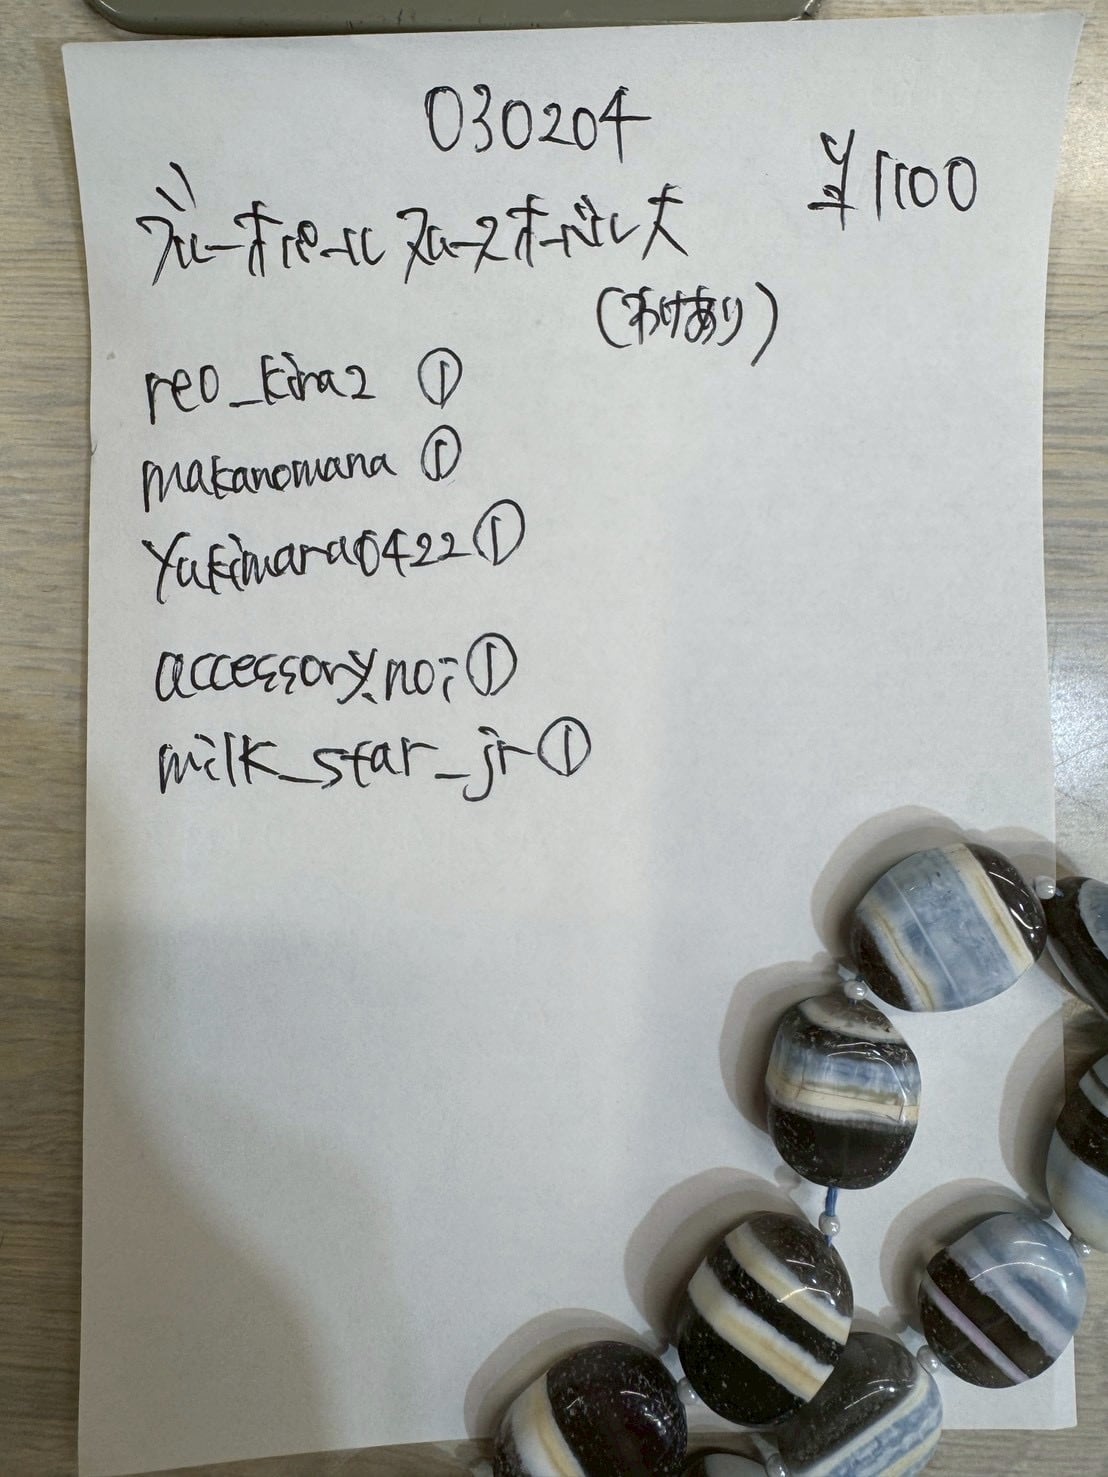 030204
¥1100
ブルーオパール スムースオーバル大
(わけあり)
reo_kira2 ①
makanomana ①
yukimara0422 ①
accessory.noi ①
milk_star_jr ①